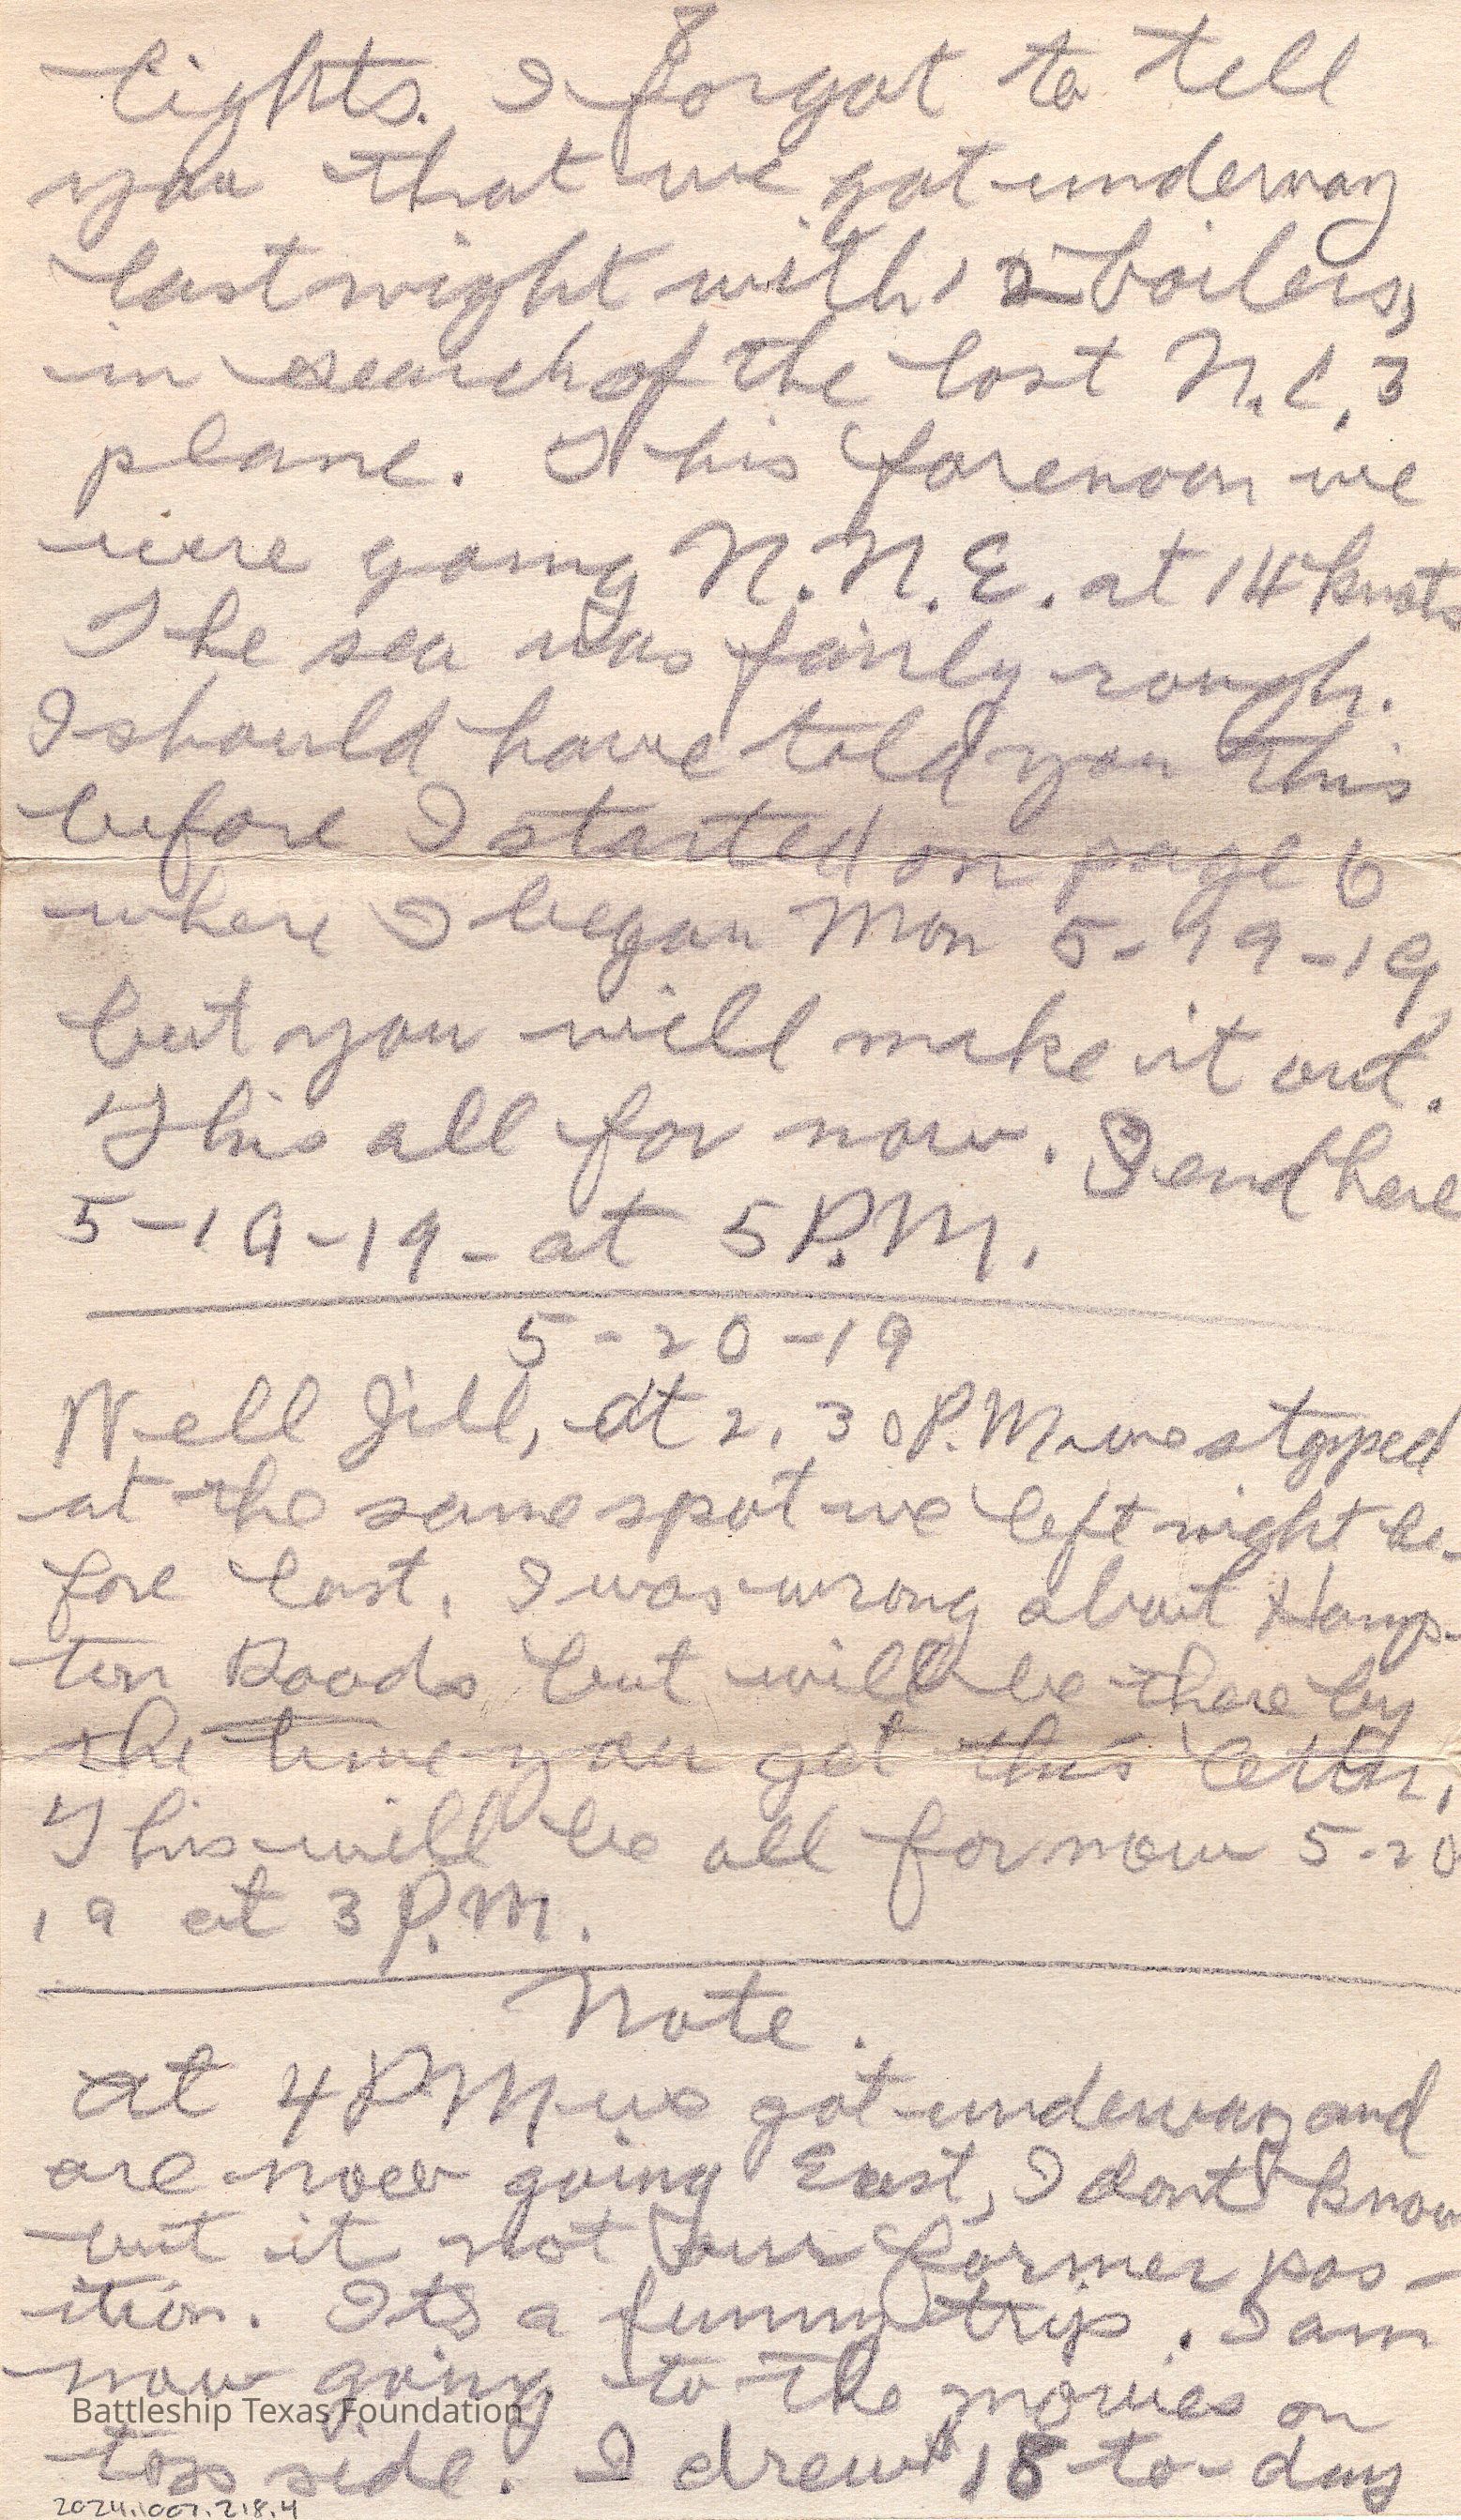 8
lights. I forgot to tell
you that we got underway
last night with 12 boilers,
in search of the lost N.C.3
plane. This forenoon we
were going N.N.E. at 14 knots
The sea was fairly rough.
I should have told you this
before I started on page 6
where I began Mon 5-19-19
but you will make it out.
This all for now. I end here
5-19-19- at 5 P.M.
5-20-19
Well Jill, at 2.30 P.M. we stopped
at the same spot we left night be-
fore last. I was wrong about Hamp-
ton Roads but will be there by
the time you get this letter.
This will be all for now 5-20
19 at 3 P.M.
Note.
at 4 PM we got underway and
are now going East, I dont know
but it not our former pos-
ition. Its a funny trip. I am
now going to the movies on
tops side. I drew 18 to-day
Battleship Texas Foundation
2024.1007.218.4